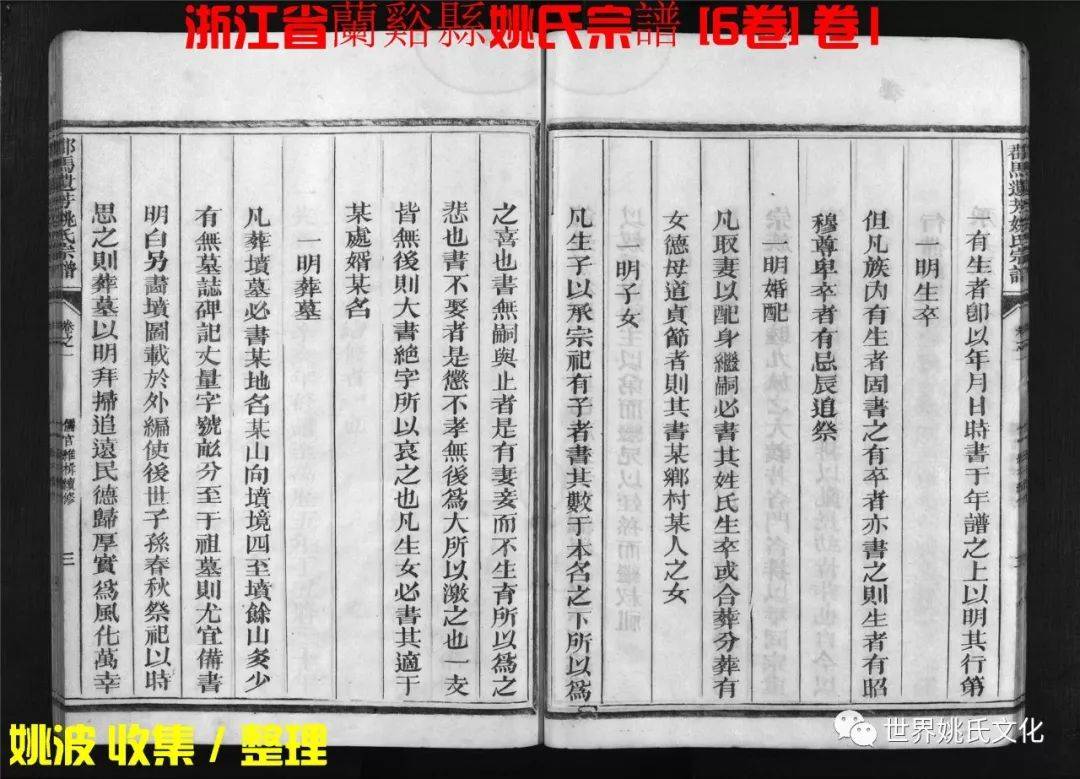 浙江省蘭谿縣姚氏宗譜 [6卷] 卷1
都馬遺芳姚氏宗譜
示有生者卽以年月日時書于年譜之上以明其行第
一明生卒
但凡族內有生者固書之有卒者亦書之則生者有昭
穆尊卑卒者有忌辰追祭
一明婚配
凡取妻以配身繼嗣必書其姓氏生卒或合葬分葬有
女德母道貞節者則其書某鄉村某人之女
一明子女
凡生子以承宗祀有子者書其數于本名之下所以爲
之喜也書無嗣與止者是有妻妾而不生育所以爲之
悲也書不娶者是懲不孝無後爲大所以激之也一支
皆無後則大書絕字所以哀之也凡生女必書其適于
某處婿某名
一明葬墓
凡葬墳墓必書某地名某山向墳境四至墳餘山多少
有無墓誌碑記丈量字號畝分至于祖墓則尤宜備書
明白另畵墳圖載於外編使後世子孫春秋祭祀以時
思之則葬墓以明拜掃追遠民德歸厚實爲風化萬幸
都馬遺芳姚氏宗譜
卷之一
三
姚波 收集 / 整理
世界姚氏文化